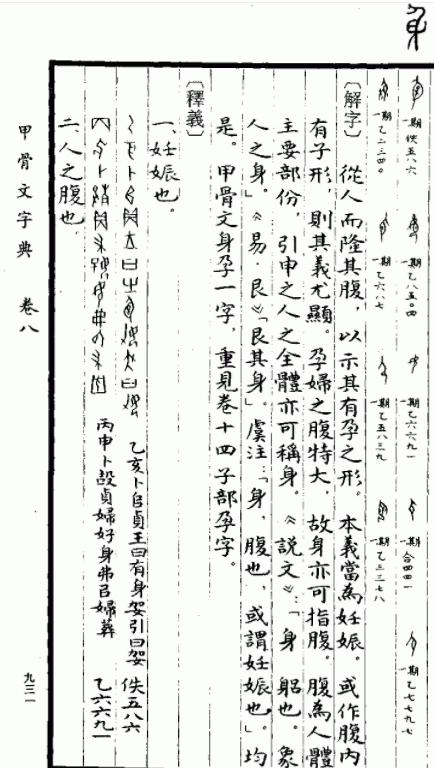 身
一期 佚五八六
一期 乙八五〇四
一期 乙六六九一
一期 合四四一
一期 乙七七九七
一期 乙二三四〇
一期 乙六八七
一期 乙五八三九
一期 乙三三七八
〔解字〕從人而隆其腹，以示其有孕之形。本義當為妊娠。或作腹內
有子形，則其義尤顯。孕婦之腹特大，故身亦可指腹。腹為人體
主要部份，引申之人之全體亦可稱身。《說文》：「身，躳也。象
人之身。」《易·艮》：「艮其身」。虞注：「身，腹也，或謂妊娠也。」均
是。甲骨文身孕一字，重見卷十四子部孕字。
〔釋義〕
一、妊娠也。
乙亥卜𠂤貞王曰有身㚸引曰㚸 佚五八六
丙申卜㱿貞婦好身弗㠯婦葬 乙六六九一
二、人之腹也。
甲骨文字典 卷八
九三一